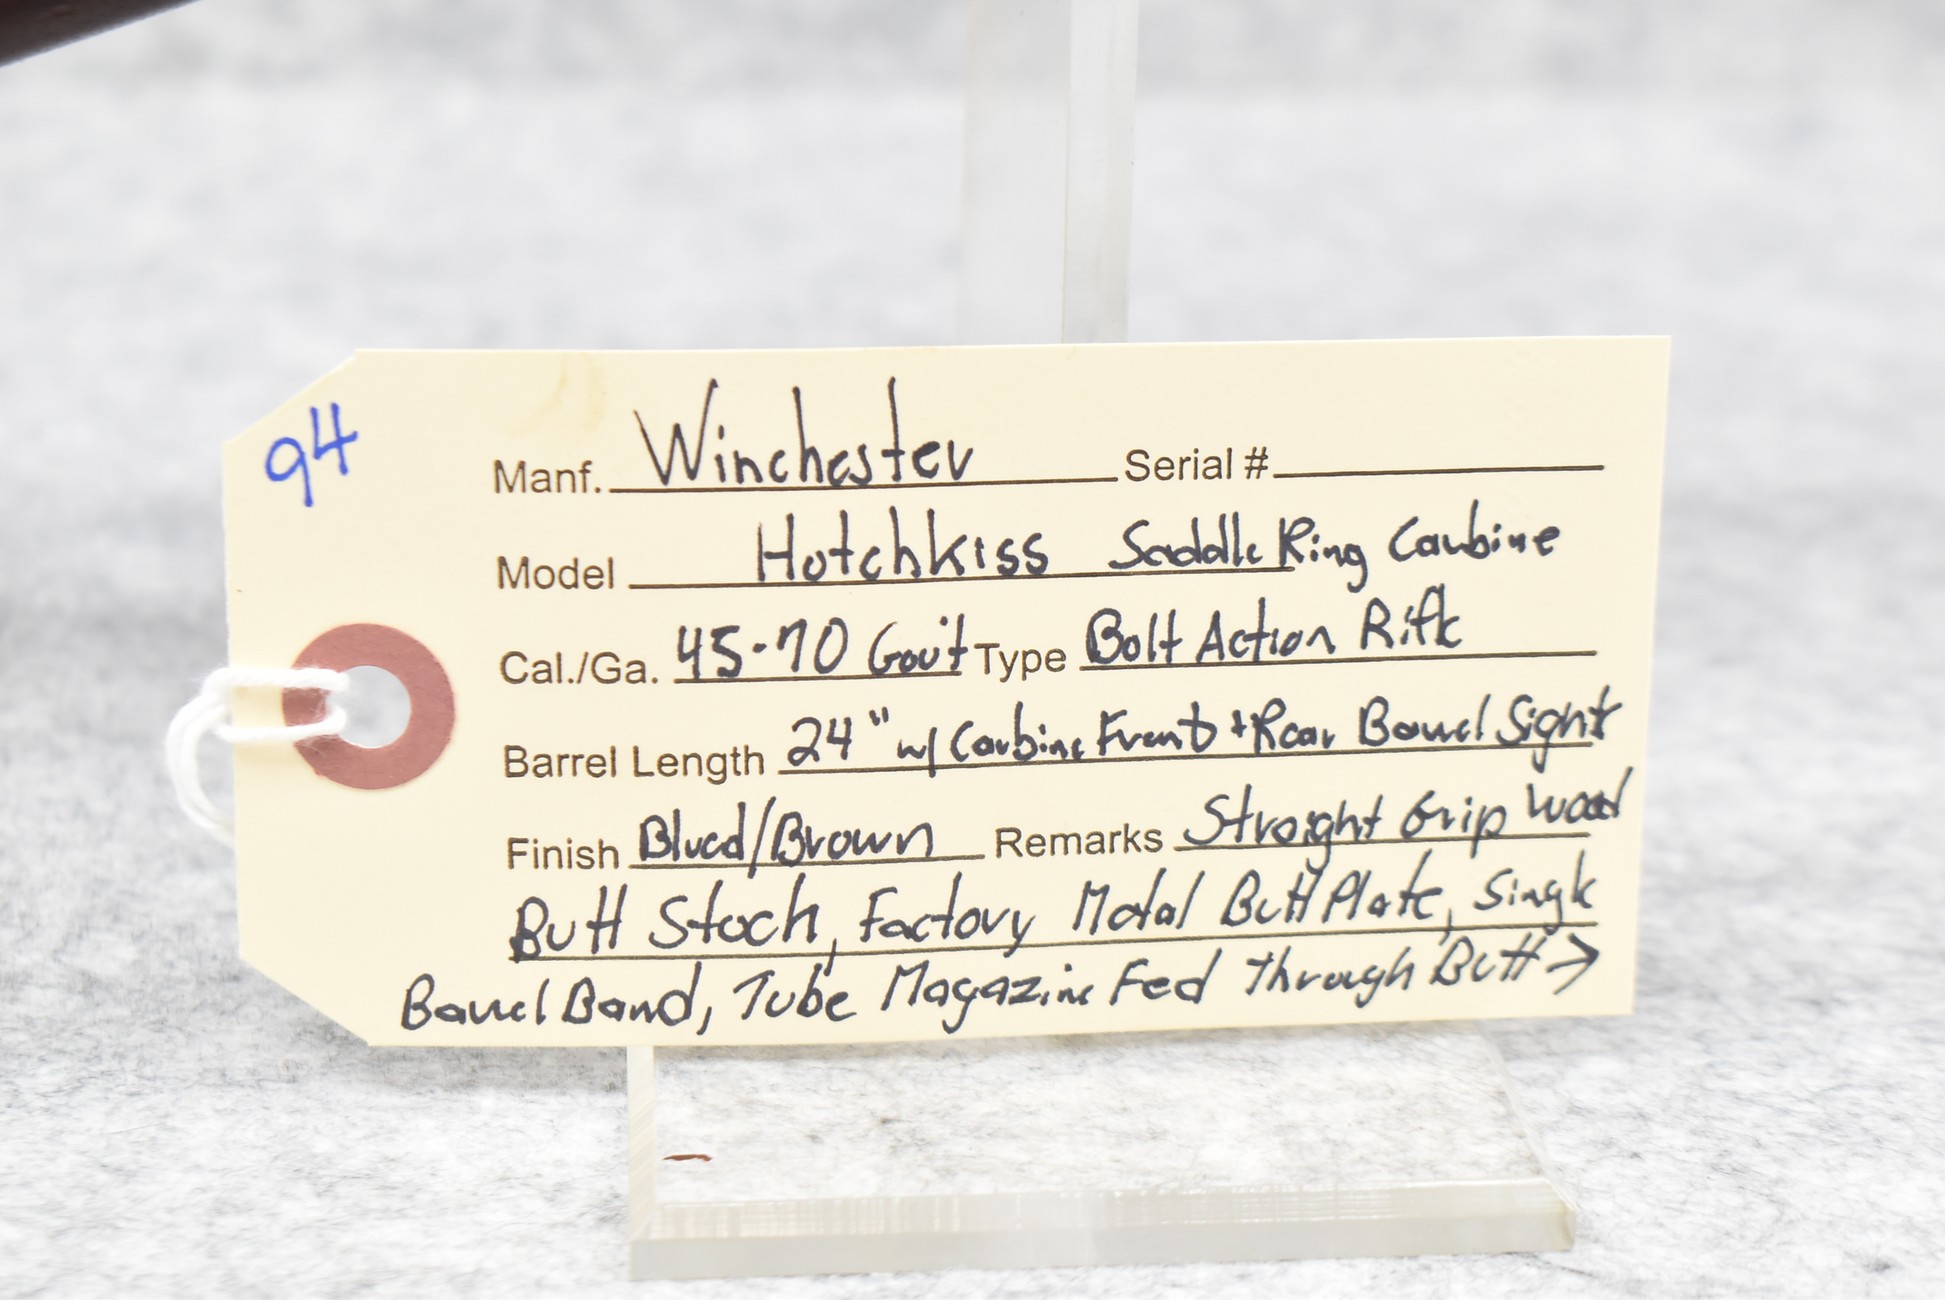 94
Manf. Winchester Serial #
Model Hotchkiss Saddle Ring Carbine
Cal./Ga. 45-70 Gov't Type Bolt Action Rifle
Barrel Length 24" w/ Carbine Front + Rear Barrel Sight
Finish Blued/Brown Remarks Straight Grip Wood
Butt Stock, Factory Metal Butt Plate, Single
Barrel Band, Tube Magazine Fed Through Butt →